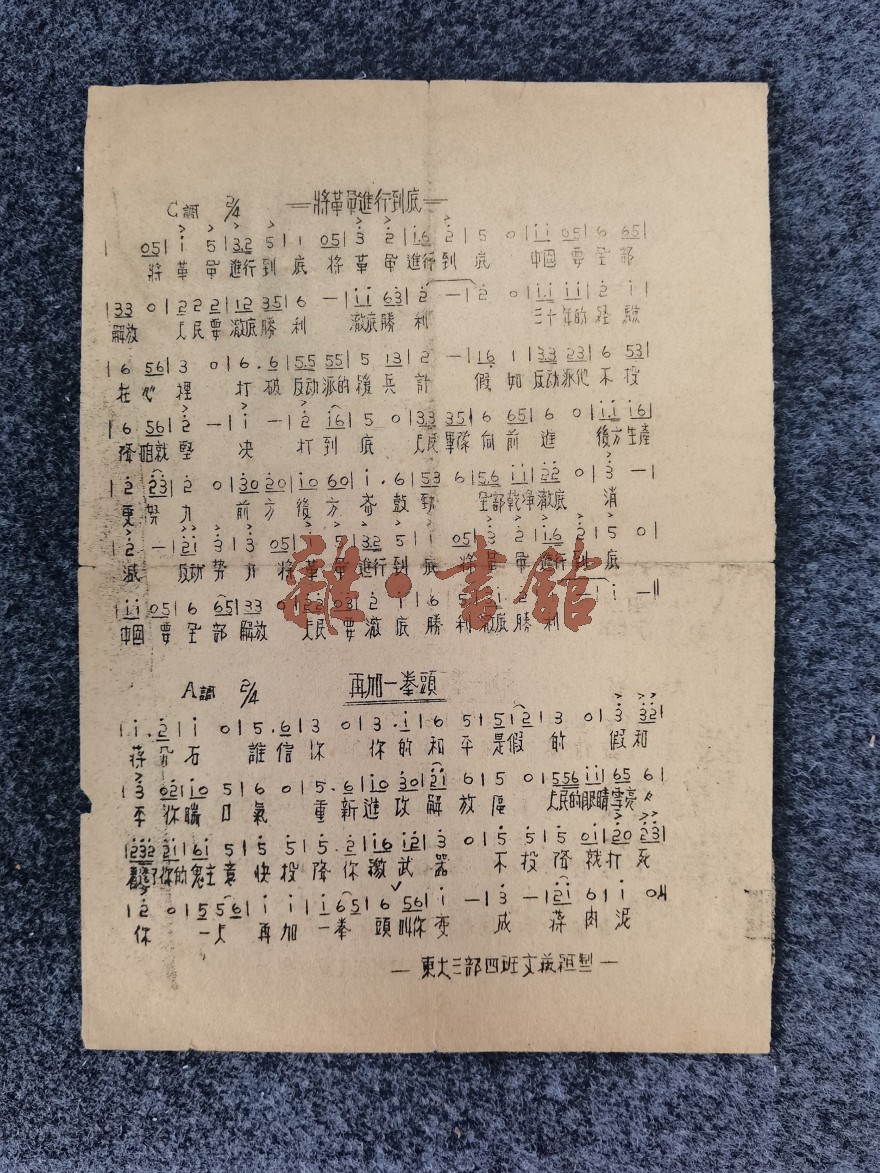 C調 2/4 ═將革命進行到底═
1 05| i 5 |3.2 5 | 1 05| 3 2 |i.6 2 | 5 0 |i i 05| 6 65|
將 革 命 進行到 底 將 革 命 進行到 底 中國 要 全 部
|33 0 |2 2 2 |12 35| 6 — |i i 63| 2 — | 2 0 |i.i i i| 2 i |
解放 人民要 澈底勝 利 澈底勝 利 三十年的 經 驗
|6 56| 3 0 | 6 . 6 |5.5 55| 5 13| 2 — |16 1 |3.3 23| 6 53|
在 心 裡 打 破 反动派的 緩 兵 計 假 如 反动派他 不 投
|6 56| 2 — | i — | 2 i6| 5 0 |33 35| 6 65| 6 0 |i.i i6|
降咱就 堅 决 打 到 底 人民 軍隊 向 前 進 後方 生產
|2 23| 2 0 |30 20|i0 60| i . 6 |53 6 |5.6 i i|22 0 | 3 — |
更 努 力 前 方 後 方 齐 鼓 勁 全部乾净澈底 消
|2 — |2 i 3 | 3 05| i 5 |3.2 5 | i 05| 3 2 |i.6 2 | 5 0 |
滅 反动 势 力 將 革 命 進行到 底 將 革 命 進行到 底
|i i 05| 6 65|33 0
中國 要 全 部 解放 人民 要 澈 底 勝 利 澈底 勝 利
A調 2/4 再加一拳頭
|i . 2 | i 0 | 5 . 6 | 3 0 | 3 . i | 6 5 |5 i 2 | 3 0 | 3 32|
蔣 介 石 誰 信 你 你 的 和 平 是假 的 假 和
|3 02|i0 5 | 6 0 | 5 . 6 |i0 30|2i 6 | 5 0 |556 i i|65 6 |
平 你喘 口 氣 重 新 進 攻 解 放 區 人民的眼睛雪亮
你的鬼主意 快 投 降 你 繳 武 器 不 投 降 就 打 死
|2 0 |5 56| i i |i 65| 6 56| i — | 3 — |2i 6 | i 0
你 一人 再 加 一 拳 頭 叫你 变 成 蒋 肉 泥
— 東大三部四班文娱組型 —
雜·書館